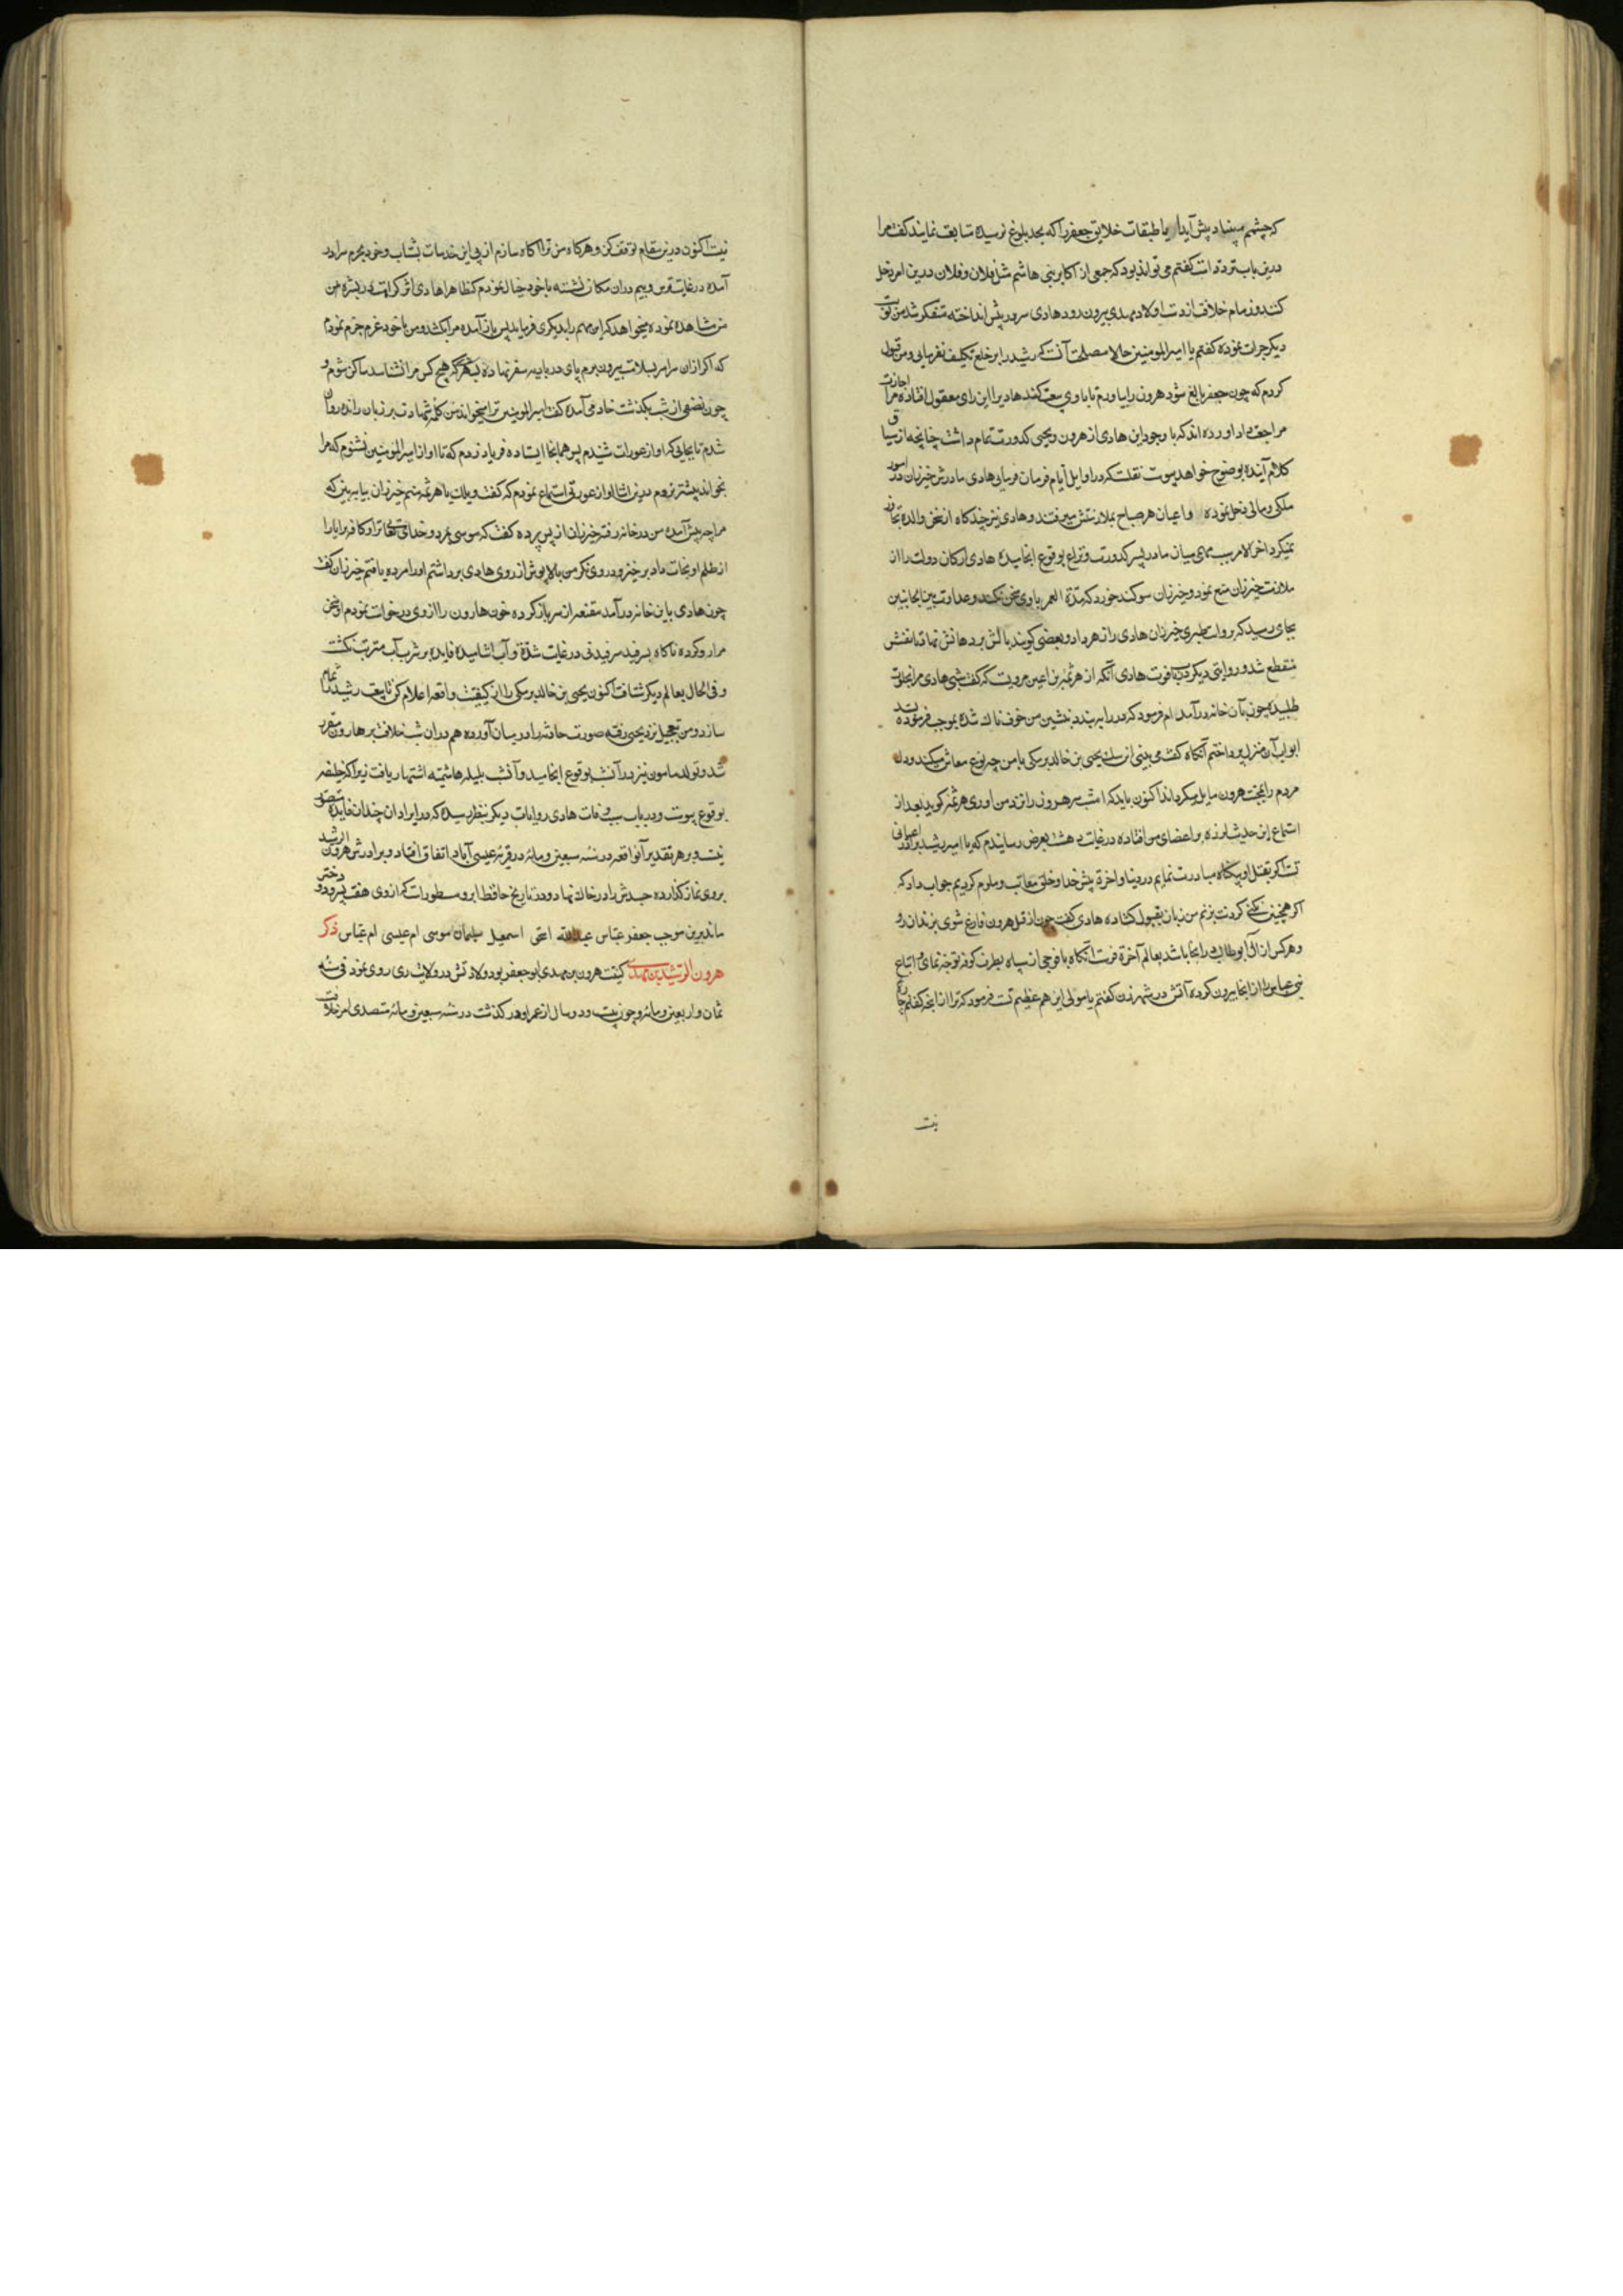 که چشم مینداد پیش آید ایا طبقات خلایق جعفر را که بحد بلوغ نرسیده متابعت نمایند گفت مرا
درین باب تردد است گفتم می تواند بود که جمعی از اکابر بنی هاشم مثل فلان و فلان درین امر دخل
کنند و زمام خلافت از دست اولاد مهدی بیرون رود هادی سر در پیش انداخته متفکر شد من نوبت
دیگر جرات نموده گفتم یا امیرالمومنین حالا مصلحت آنست که رشید را بر خلع تکلیف نفرمایی و من قبول
کردم که چون جعفر بالغ شود هرون را بیاورم تا با وی بیعت کند هادی را این رای معقول افتاده مرا اجازت
مراجعت داد آورده اند که با وجود این هادی از هرون و یحیی کدورت تمام داشت چنانچه از سیاق
کلام آینده بوضوح خواهد پیوست نقلست که در اوایل ایام فرمان فرمایی هادی مادرش خیزران در امور
ملکی و مالی دخل نموده و اعیان هر صباح بملازمتش میرفتند و هادی نیز چندگاه از سخن والده تجاوز
نمیکرد اخر الامر بسبب مهمی میان مادر و پسر کدورت و نزاع بوقوع انجامیده هادی ارکان دولت را از
ملازمت خیزران منع نمود و خیزران سوکند خورد که مدة العمر با وی سخن نکند و عداوت بین الجانبین
بجای رسید که بروایت طبری خیزران هادی را زهر داد و بعضی گویند بالش بر دهانش نهاد تا نفسش
منقطع شد و روایتی دیگر در سبب فوت هادی آنکه از هرثمه بن اعین مرویست که گفت شبی هادی مرا بخلوت
طلبیده چون بآن خانه درآمدم فرمود که در را ببند و بنشین من خوف ناک شده بموجب فرموده بسد
ابواب آن منزل پرداختم آنگاه گفت می بینی این سک یحیی بن خالد برمکی با من چه نوع معاش میکند و دل
مردم را بمحبت هرون مایل میگرداند اکنون باید که امشب سر هرون را نزد من آوری هرثمه گوید بعد از
استماع این حدیث لرزه بر اعضای من افتاده در غایت دهشت بعرض رسانیدم که یا امیر رشید برادر اعیانی
تست اگر بقتل او بیگناه مبادرت نمایم در دنیا و اخرة پیش خدا و خلق معاتب و ملوم گردیم جواب داد که
اگر همچنین نکنی گردنت بزنم من زبان بقبول گشاده هادی گفت چون از قتل هرون فارغ شوی بزندان رو
و هرکس از آل ابوطالب در انجا باشد بعالم آخرة فرست آنگاه با فوجی از سپاه بطرف کوفه توجه نمای و اتباع
بنی عباس را از انجا بیرون کرده آتش در شهر زن گفتم یا مولی این هم عظیم تست فرمود که ترا از انچه گفتم چاره
نیست
نیست اکنون درین مقام توقف کن و هرگاه من ترا آگاه سازم از پی این خدمات بشتاب و خود بحرم سرا در
آمده در غایت ترس و بیم دران مکان نشسته با خود خیال نمودم که ظاهرا هادی اثر کراهت در بشره من
من مشاهده نموده میخواهد که این مهم را بدیگری فرماید پس باز آمده مرا بکشد و من با خود عزم جزم نمودم
که اگر ازان سرا بسلامت بیرون روم پای در بادیه سفر نهاده بشهری که هیچ کس مرا نشناسد ساکن شوم و
چون نصفی از شب بگذشت خادمی آمده گفت امیرالمومنین ترا میخواند من کلمه شهادت بر زبان رانده روان
شدم تا بجایی که آواز عورات شنیدم پس همانجا ایستاده فریاد زدم که تا آواز امیرالمومنین نشنوم که مرا
بخواند پیشتر نروم درین اثنا آواز عورتی استماع نمودم که گفت ویلک یا هرثمه منم خیزران بیا ببین که
مرا چه پیش آمده من در خانه رفته خیزران از پس پرده گفت که موسی بمرد و خدای تعالی ترا و کافه برایا را
از ظلم او نجات داد برخیز و در وی نگر من بالاپوش از روی هادی برداشتم او را مرده یافتم خیزران گفت
چون هادی باین خانه درآمد مقنعه از سر باز کرده خون هارون را از وی درخواست نمودم او سخن
مرا رد کرده ناگاه بسرفید سرفیدنی در غایت شدة و آب اشامیده فایده بر شرب آب مترتب نگشت
و فی الحال بعالم دیگر شتافت اکنون یحیی بن خالد برمکی را از کیفیت واقعه اعلام کن تا بیعت رشید را تمام
سازد و من بتعجیل نزد یحیی رفته صورت حادثه را در میان آورده هم دران شب خلافت بر هارون مقرر
شد و تولد مامون نیز در آن شب بوقوع انجامید و آن شب بلیله هاشمیه اشتهار یافت زیرا که
بوقوع پیوست و در باب سبب وفات هادی روایات دیگر بنظر رسیده که در ایراد ان چندان فایده متصور
نیست و بر هر تقدیر آن واقعه در سنه سبعین و مائه در قریه عیسی آباد اتفاق افتاد و برادرش هرون الرشید
بر وی نماز گذارده جسدش را در خاک نهاد و در تاریخ حافظ ابرو مسطورست که از وی هفت پسر و دو دختر
ماند برین موجب جعفر عباس عبدالله اسحق اسمعیل سلیمان موسی ام عیسی ام عباس ذکر
هرون الرشید بن مهدی کنیت هرون بن مهدی ابو جعفر بود ولادتش در ولایت ری روی نمود فی سنه
ثمان و اربعین و مائه و چون بیست و دو سال از عمر او در گذشت در سنه سبعین و مائه متصدی امر خلافت